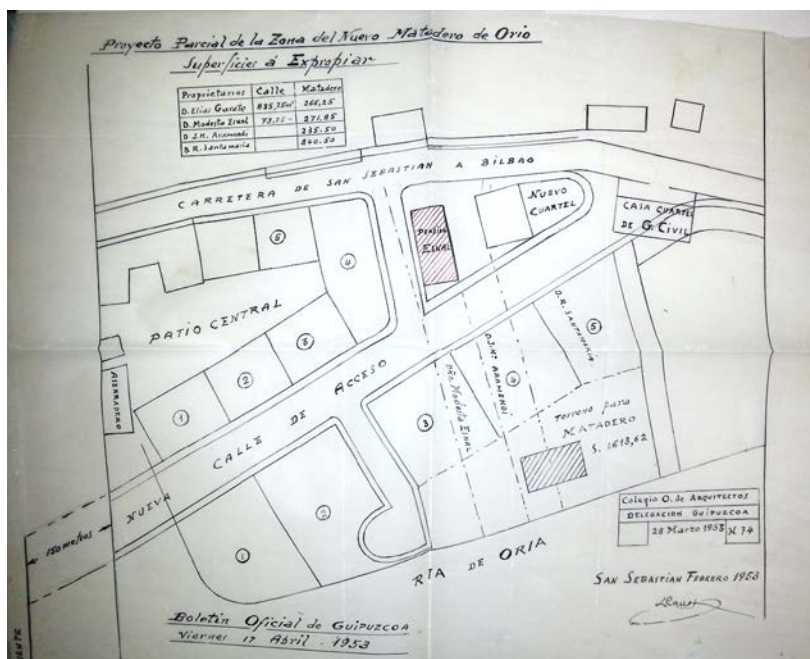 Proyecto Parcial de la Zona del Nuevo Matadero de Orio
Superficies á Expropiar
Proprietarios Calle Matadero
D. Elias Garate 835,75 m² 266,25
D. Modesta Esnal 73,75 - 271,85
D J.M. Aramendi 235.50
D. R. Santamaria 840.50
CARRETERA DE SAN SEBASTIAN A BILBAO
NUEVO
CUARTEL
CASA CUARTEL
DE G. CIVIL
PENSION
ESNAL
5
4
PATIO CENTRAL
3
2
1
ASERRADERO
NUEVA CALLE DE ACCESO
D. R. SANTAMARIA
5
D. J. Mª ARAMENDI
4
Dña. Modesta Esnal
3
Terreno para
MATADERO
S. 1613,62
150 metros
2
1
RÍA DE ORIA
Colegio O. de Arquitectos
DELEGACION GUIPUZCOA
28 Marzo 1953 N. 74
SAN SEBASTIAN FEBRERO 1953
Boletin Oficial de Guipuzcoa
Viernes 17 Abril - 1953